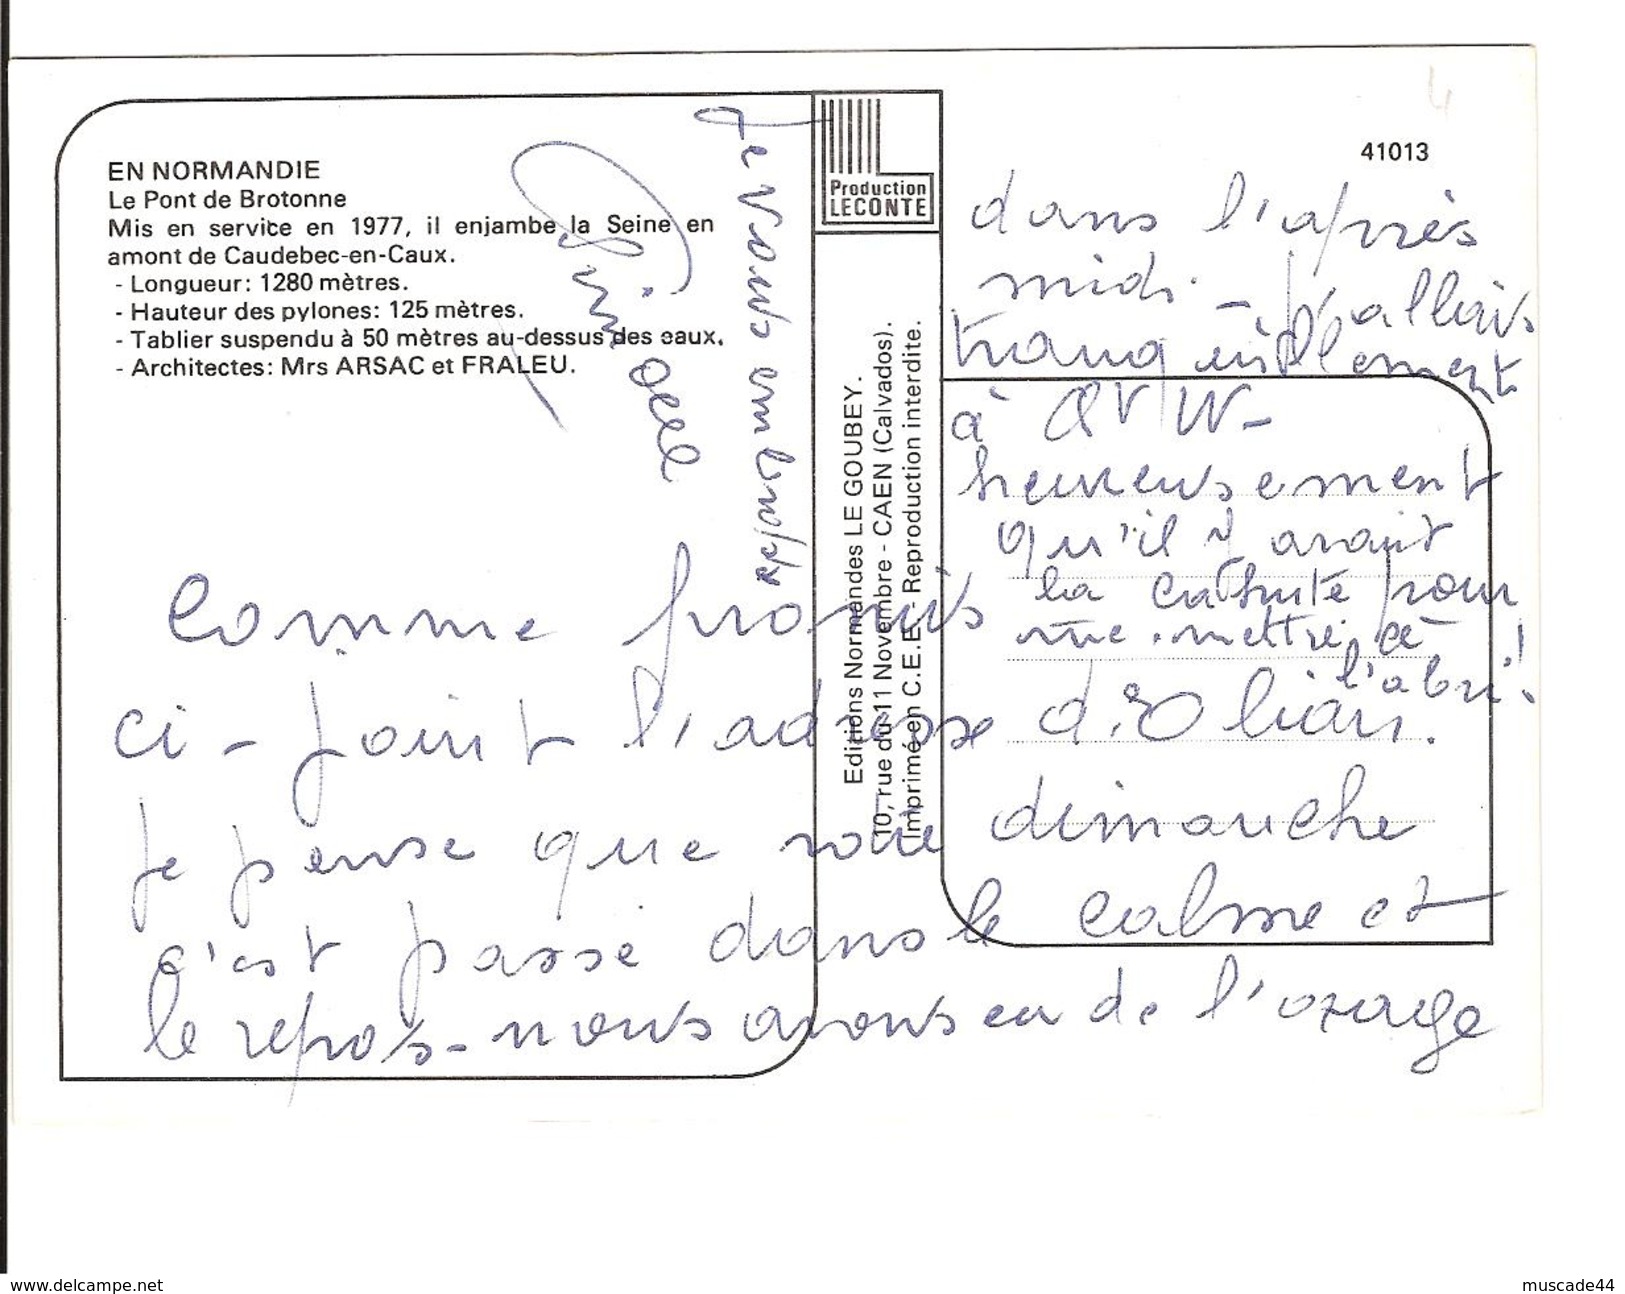 EN NORMANDIE
Le Pont de Brotonne
Mis en service en 1977, il enjambe la Seine en
amont de Caudebec-en-Caux.
- Longueur: 1280 mètres.
- Hauteur des pylones: 125 mètres.
- Tablier suspendu à 50 mètres au-dessus des eaux.
- Architectes: Mrs ARSAC et FRALEU.
Production
LECONTE
41013
Editions Normandes LE GOUBEY.
10, rue du 11 Novembre - CAEN (Calvados).
Imprimé en C.E.E. - Reproduction interdite.
Comme promis
ci-joint l'adresse d'Elian.
Je pense que votre dimanche
c'est passé dans le calme et
le repos - nous avons eu de l'orage
dans l'après
midi - j'allais
tranquillement
à
heureusement
qu'il y avait
la cahute pour
me mettre à
l'abri!
Je vous embrasse